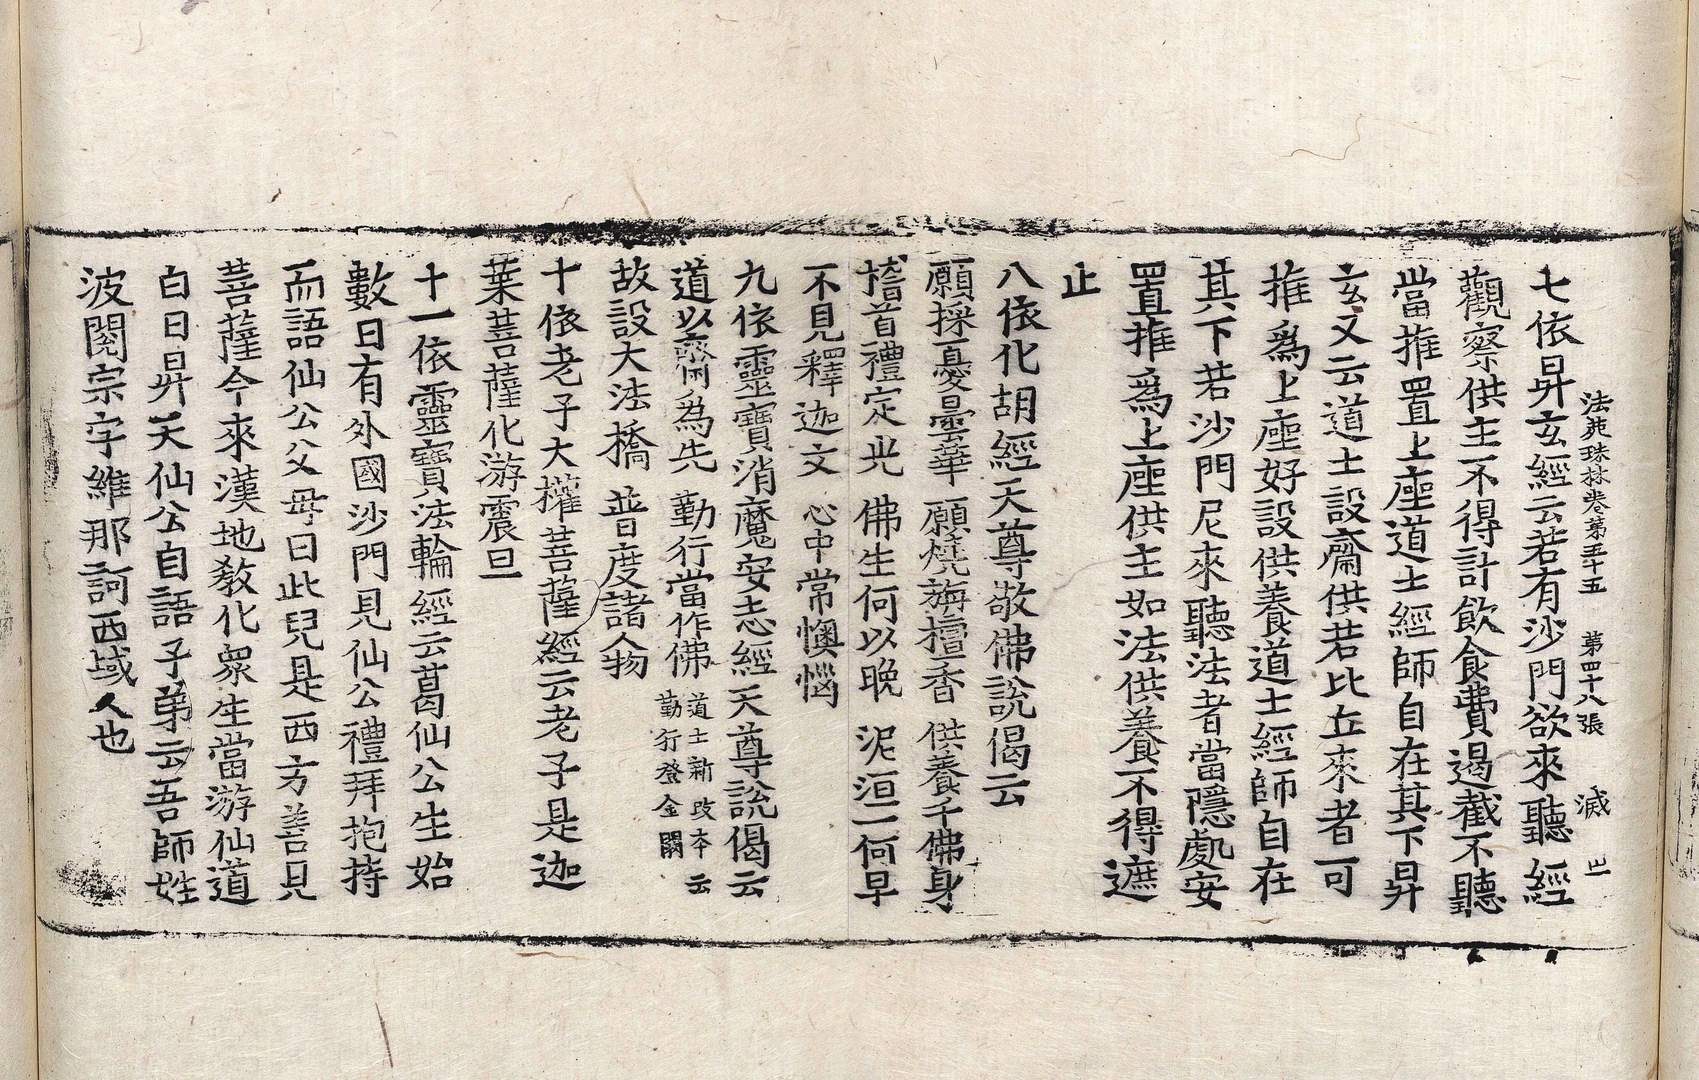 法苑珠林卷第五十五　第四十八張　滅
七依昇玄經云若有沙門欲來聽經
觀察供主不得計飲食費遏截不聽
當推置上座道士經師自在其下昇
玄又云道士設齋供若比丘來者可
推爲上座好設供養道士經師自在
其下若沙門尼來聽法者當隱處安
置推爲上座供主如法供養不得遮
止
八依化胡經天尊敬佛說偈云
願採憂曇華　願燒旃檀香　供養千佛身
稽首禮定光　佛生何以晚　泥洹一何早
不見釋迦文　心中常懊惱
九依靈寶消魔安志經天尊說偈云
道以齋爲先　勤行當作佛　道士新改本云勤行登金闕
故設大法橋　普度諸人物
十依老子大權菩薩經云老子是迦
葉菩薩化游震旦
十一依靈寶法輪經云葛仙公生始
數日有外國沙門見仙公禮拜抱持
而語仙公父母曰此兒是西方善見
菩薩今來漢地教化衆生當游仙道
白日昇天仙公自語子弟云吾師姓
波閱宗字維那訶西域人也